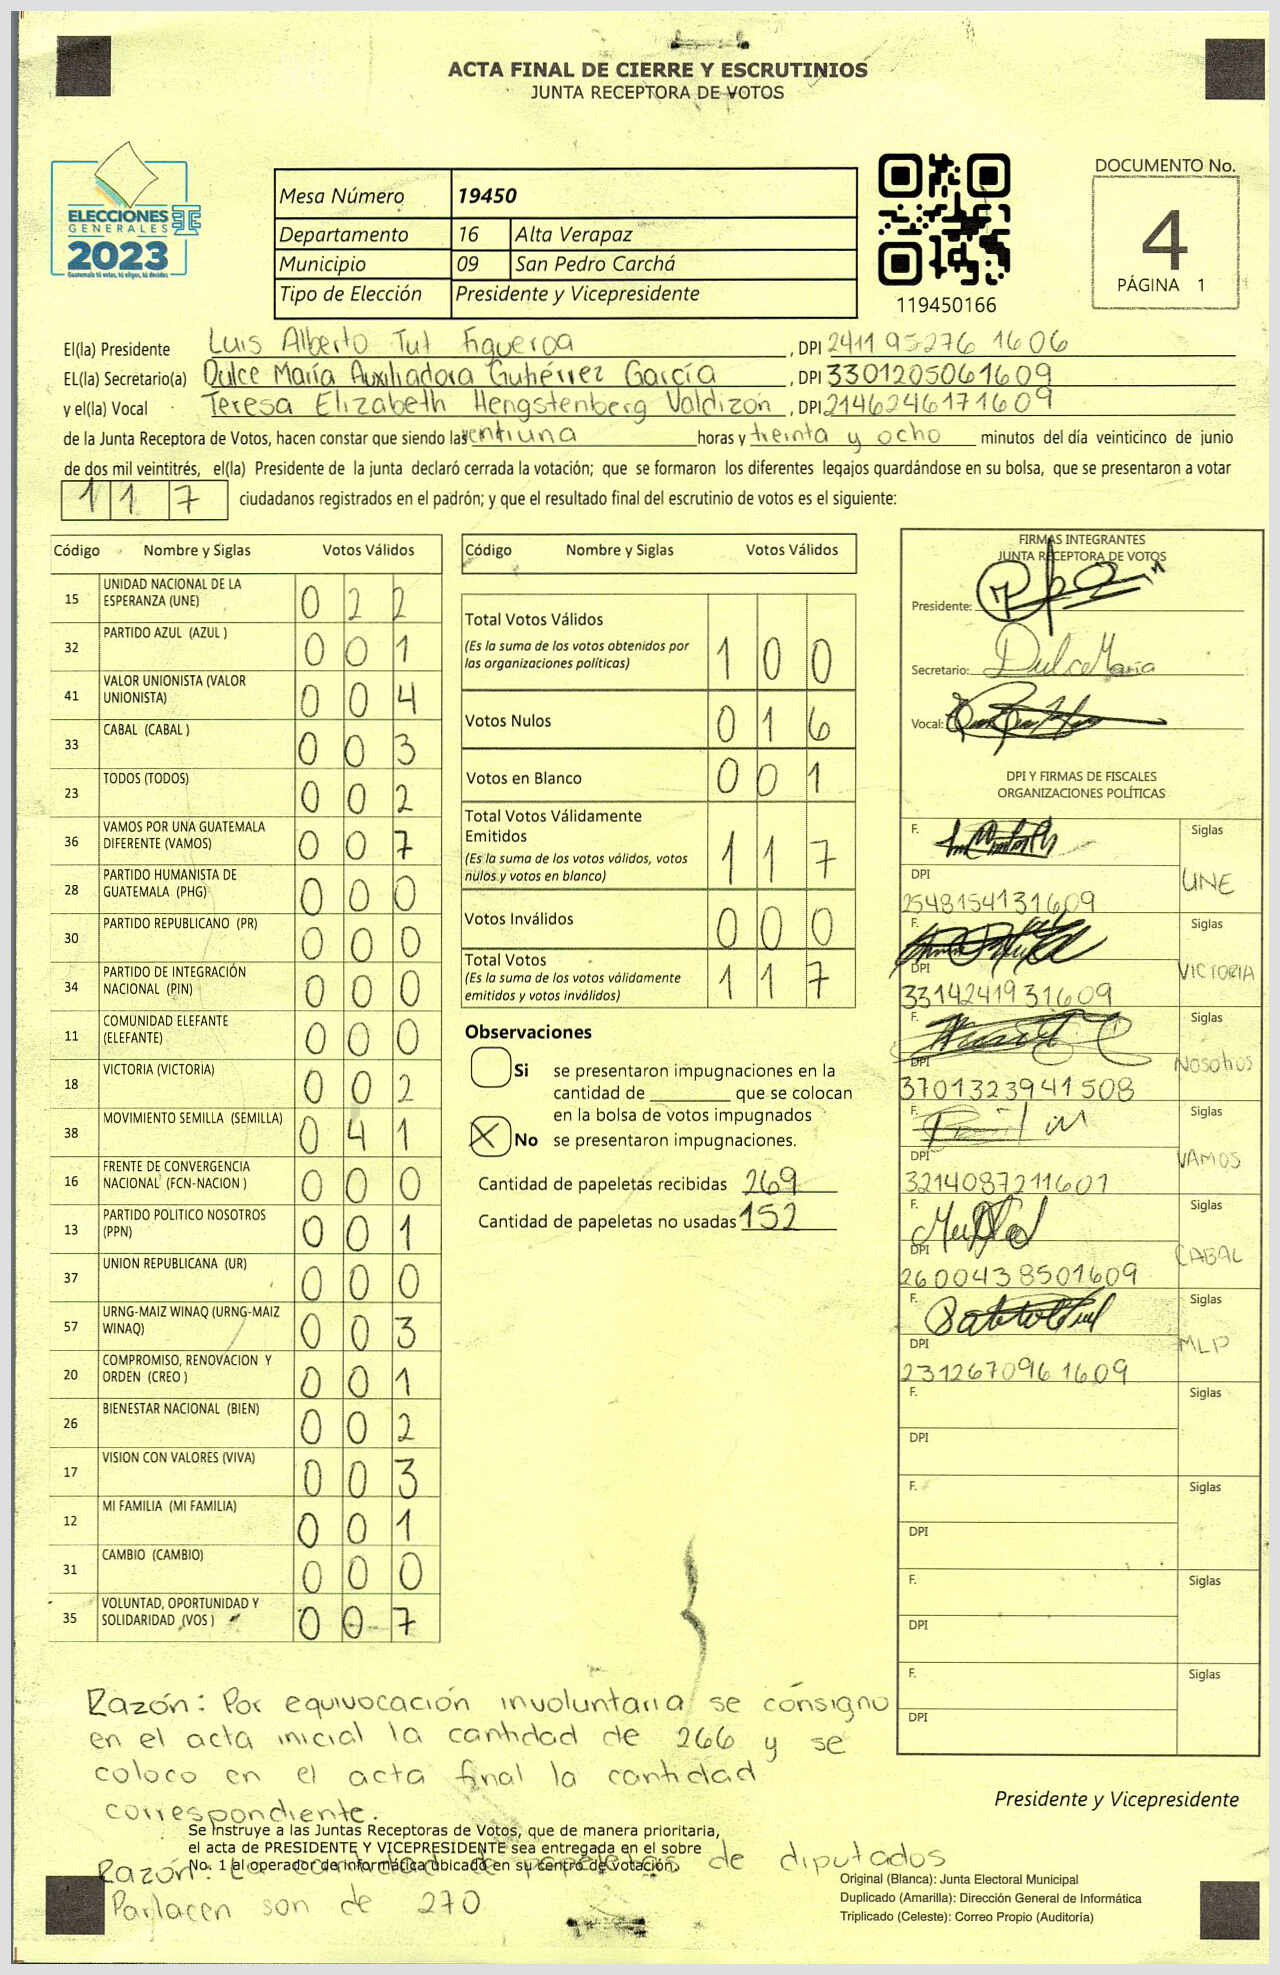 ACTA FINAL DE CIERRE Y ESCRUTINIOS
JUNTA RECEPTORA DE VOTOS
ELECCIONES
GENERALES
2023
Guatemala tú votas, tú eliges, tú decides
Mesa Número 19450
Departamento 16 Alta Verapaz
Municipio 09 San Pedro Carchá
Tipo de Elección Presidente y Vicepresidente
119450166
DOCUMENTO No.
4
PÁGINA 1
El(la) Presidente Luis Alberto Tut Figueroa, DPI 2411 95276 1606
EL(la) Secretario(a) Dulce María Auxiliadora Gutiérrez García, DPI 3301205061609
y el(la) Vocal Teresa Elizabeth Hengstenberg Valdizón, DPI 2146246171609
de la Junta Receptora de Votos, hacen constar que siendo las ventiuna horas y treinta y ocho minutos del día veinticinco de junio
de dos mil veintitrés, el(la) Presidente de la junta declaró cerrada la votación; que se formaron los diferentes legajos quardándose en su bolsa, que se presentaron a votar
117 ciudadanos registrados en el padrón; y que el resultado final del escrutinio de votos es el siguiente:
Código Nombre y Siglas Votos Válidos
15 UNIDAD NACIONAL DE LA ESPERANZA (UNE) 022
32 PARTIDO AZUL (AZUL ) 001
41 VALOR UNIONISTA (VALOR UNIONISTA) 004
33 CABAL (CABAL ) 003
23 TODOS (TODOS) 002
36 VAMOS POR UNA GUATEMALA DIFERENTE (VAMOS) 007
28 PARTIDO HUMANISTA DE GUATEMALA (PHG) 000
30 PARTIDO REPUBLICANO (PR) 000
34 PARTIDO DE INTEGRACIÓN NACIONAL (PIN) 000
11 COMUNIDAD ELEFANTE (ELEFANTE) 000
18 VICTORIA (VICTORIA) 002
38 MOVIMIENTO SEMILLA (SEMILLA) 041
16 FRENTE DE CONVERGENCIA NACIONAL (FCN-NACION ) 000
13 PARTIDO POLITICO NOSOTROS (PPN) 001
37 UNION REPUBLICANA (UR) 000
57 URNG-MAIZ WINAQ (URNG-MAIZ WINAQ) 003
20 COMPROMISO, RENOVACION Y ORDEN (CREO ) 001
26 BIENESTAR NACIONAL (BIEN) 002
17 VISION CON VALORES (VIVA) 003
12 MI FAMILIA (MI FAMILIA) 001
31 CAMBIO (CAMBIO) 000
35 VOLUNTAD, OPORTUNIDAD Y SOLIDARIDAD (VOS ) 007
Código Nombre y Siglas Votos Válidos
Total Votos Válidos
(Es la suma de los votos obtenidos por
las organizaciones políticas) 100
Votos Nulos 016
Votos en Blanco 001
Total Votos Válidamente
Emitidos
(Es la suma de los votos válidos, votos
nulos y votos en blanco) 117
Votos Inválidos 000
Total Votos
(Es la suma de los votos válidamente
emitidos y votos inválidos) 117
Observaciones
Si se presentaron impugnaciones en la
cantidad de ________ que se colocan
en la bolsa de votos impugnados
X No se presentaron impugnaciones.
Cantidad de papeletas recibidas 269
Cantidad de papeletas no usadas 152
FIRMAS INTEGRANTES
JUNTA RECEPTORA DE VOTOS
Presidente:
Secretario: Dulce María
Vocal:
DPI Y FIRMAS DE FISCALES
ORGANIZACIONES POLÍTICAS
F. Siglas
DPI UNE
2548154131609
F. Siglas
DPI VICTORIA
3314241931609
F. Siglas
DPI Nosotros
3701323941508
F. Siglas
DPI VAMOS
3214087211601
F. Siglas
DPI CABAL
2600438501609
F. Siglas
DPI MLP
2312670961609
F. Siglas
DPI
F. Siglas
DPI
F. Siglas
DPI
F. Siglas
DPI
Razón: Por equivocación involuntaria se consigno
en el acta inicial la cantidad de 266 y se
coloco en el acta final la cantidad
correspondiente.
Presidente y Vicepresidente
Se instruye a las Juntas Receptoras de Votos, que de manera prioritaria,
el acta de PRESIDENTE Y VICEPRESIDENTE sea entregada en el sobre
No. 1 al operador de informática ubicado en su centro de votación.
Razón: La cantidad de papeletas de diputados
Parlacen son de 270
Original (Blanca): Junta Electoral Municipal
Duplicado (Amarilla): Dirección General de Informática
Triplicado (Celeste): Correo Propio (Auditoría)